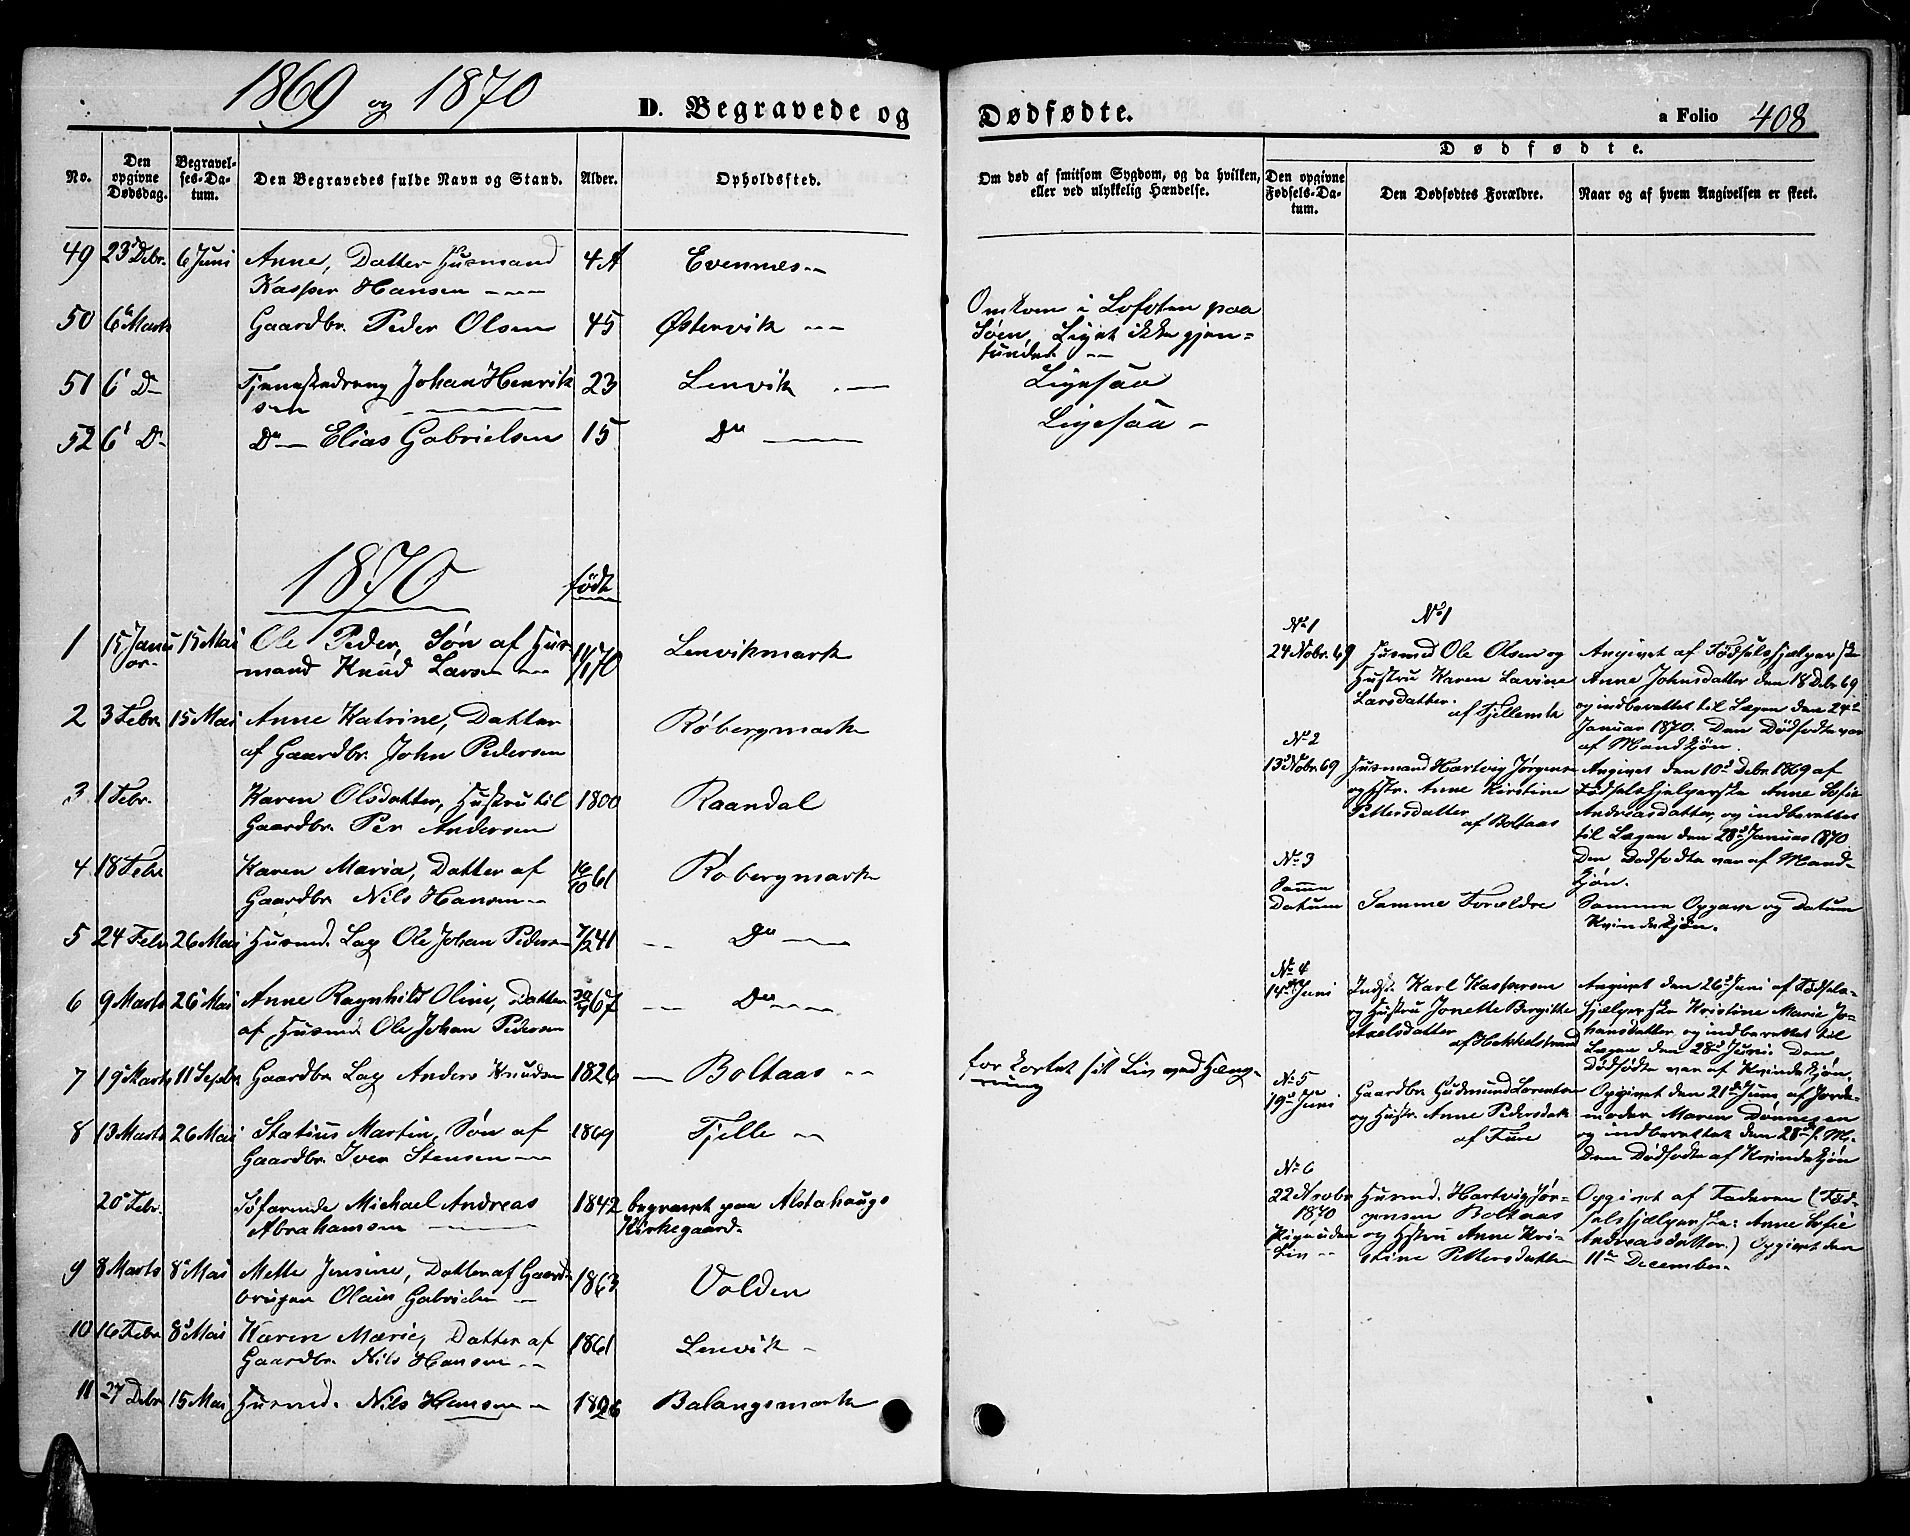 1869 og 1870
D. Begravede og
No.
Den opgivne Dødsdag.
Begravelses-Datum.
Den Begravedes fulde Navn og Stand.
Alder.
Opholdssted.
49 23 Debr. 6 Juni Anne, Datter Husmand 4 A Evennes
Kasper Hansen
50 6 Marts Gaardbr. Peder Olsen 45 Østervik
51 6 D Tjenestedreng Johan Henrik 23 Lenvik
sen
52 6 D Do Elias Gabrielsen 15 Do
1870
født
1 15 Janu 15 Mai Ole Peder, Søn af Hus
ar mand Knud Larsen 70 Lenvikmark
2 3 Febr. 15 Mai Anne Katrine, Datter Røbergmark
af Gaardbr. John Pedersen
3 1 Febr. Karen Olsdatter, Hustru til 1800 Raandal
Gaardbr. Per Andersen
4 18 Febr Karen Maria, Datter af 16/10 61 Røbergmark
Gaardbr Nils Hansen
5 24 Febr 26 Mai Husmd. Lap Ole Johan Pedersen 7/2 41 Do
6 9 Marts 26 Mai Anne Ragnhild Oline, Datter 67 Do
af Husmd Ole Johan Pedersen
7 19 Marts 11 Septbr Gaardbr Lap Anders Knudsen 1826 Boltaas
8 13 Marts 26 Mai Statius Martin, Søn af 1869 Fjelle
Gaardbr. Iver Stensen
20 Febr. Søfarende Michael Andreas 1842 begravet paa Alstahaugs
Abrahamsen Kirkegaard
9 8 Marts 8 Mai Mette Jensine, Datter af Gaard 1863 Volden
bruger Olaus Gabrielsen
10 16 Febr 8 Mai Karen Marie, Datter af 1861 Lenvik
Gaardbr. Nils Hansen
11 27 Debr 15 Mai Husmd. Nils Hansen 1826 Balangsmark
Dødfødte.
a Folio 408
Om død af smitsom Sygdom, og da hvilken,
eller ved ulykkelig Hændelse.
Dødfødte.
Den opgivne Fødsels-Datum.
Den Dødfødtes Forældre.
Naar og af hvem Angivelsen er skeet.
Omkom i Lofoten paa
Søen, Liget ikke gjen=
fundet
Ligesaa
Ligesaa
forkortet sit Liv ved Hæng=
ning
No 1 No 1
24 Nobr. 69
Husmd Ole Olsen og
Hustru Karen Lavine
Larsdatter
Angivet af Fødselshjælperske
Anne Johnsdatter den 18 Debr 69
og indberettet til Lægen den 24
Januar 1870. Den Dødfødte var
af Mandkjøn.
No 2
13 Nobr. 69
Husmand Hartvig Jørgensen
og Hstr. Anne Kirstine
Pettersdatter
af Boltaas
Angivet den 10 Debr 1869 af
Fødselshjælperske Anne Sofie
Andreasdatter, og indberettet
til Lægen den 28 Januar 1870
Den Dødfødte var af Mand-
kjøn.
No 3
Samme
Datum
Samme Forældre
Samme Opgave og Datum
Kvindekjøn.
No 4
14 Juni
Karl Kaspersen
og Hustru Jonette Birgitte
Axelsdatter
Angivet den 26 Juni af Fødsels-
hjælperske Kristine Marie Jo-
hansdatter, og indberettet til
Lægen den 28 Juni. Den
Dødfødte var af Kvindekjøn.
No 5
19 Juni
Gaardbr Gudmund Lorentsen
og Hustr. Anne Pedersdatr
af Fure
Opgivet den 21 Juni af Jorde-
moder Maren Dønnesen
og indberettet den 28 s. M.
Den Dødfødte af Kvindekjøn
No 6
22 Novbr
1870
Pige uden
Liv
Husmd. Hartvig Jør-
gensen Boltaas
og Hstru Anne Kri-
stine Pettersdatter
Opgivet af Faderen (Fød-
selshjælperske: Anne Sofie
Andreasdatter.) Opgivet den
11 December.